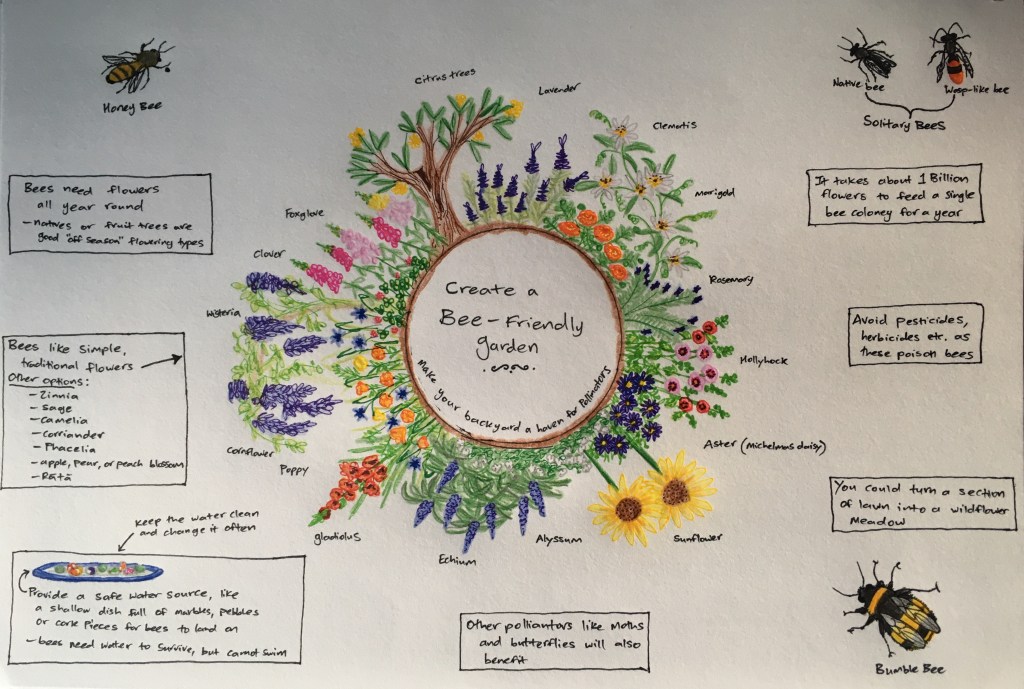 Honey Bee
Citrus trees
Lavender
Clematis
Marigold
Native bee
Wasp-like bee
Solitary Bees
Bees need flowers
all year round
- natives or fruit trees are
good "off season" flowering types
It takes about 1 Billion
flowers to feed a single
bee coloney for a year
Foxglove
Clover
Wisteria
Rosemary
Hollyhock
Create a
Bee-Friendly
garden
Make your backyard a haven for Pollinators
Avoid pesticides,
herbicides etc. as
these poison bees
Bees like simple,
traditional flowers
Other options:
- Zinnia
- Sage
- Camelia
- Corriander
- Phacelia
- apple, pear, or peach blossom
- Rātā
Cornflower
Poppy
gladiolus
Echium
Alyssum
Sunflower
Aster (Michelmas daisy)
You could turn a section
of lawn into a wildflower
Meadow
Keep the water clean
and change it often
Provide a safe water source, like
a shallow dish full of marbles, pebbles
or cork pieces for bees to land on
- bees need water to survive, but cannot swim
Other polliantors like Moths
and butterflies will also
benefit
Bumble Bee